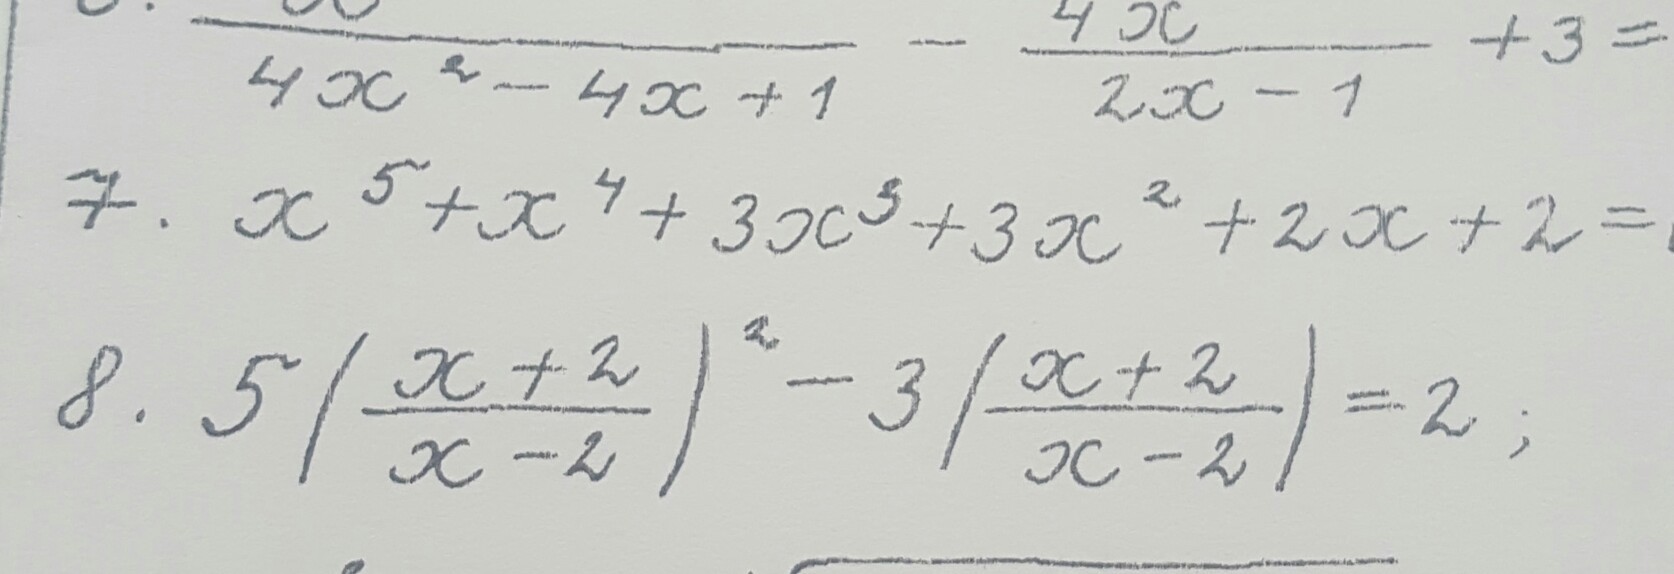 x / (4x² - 4x + 1) - 4x / (2x - 1) + 3 =
7. x⁵ + x⁴ + 3x³ + 3x² + 2x + 2 =
8. 5((x + 2) / (x - 2))² - 3((x + 2) / (x - 2)) = 2;